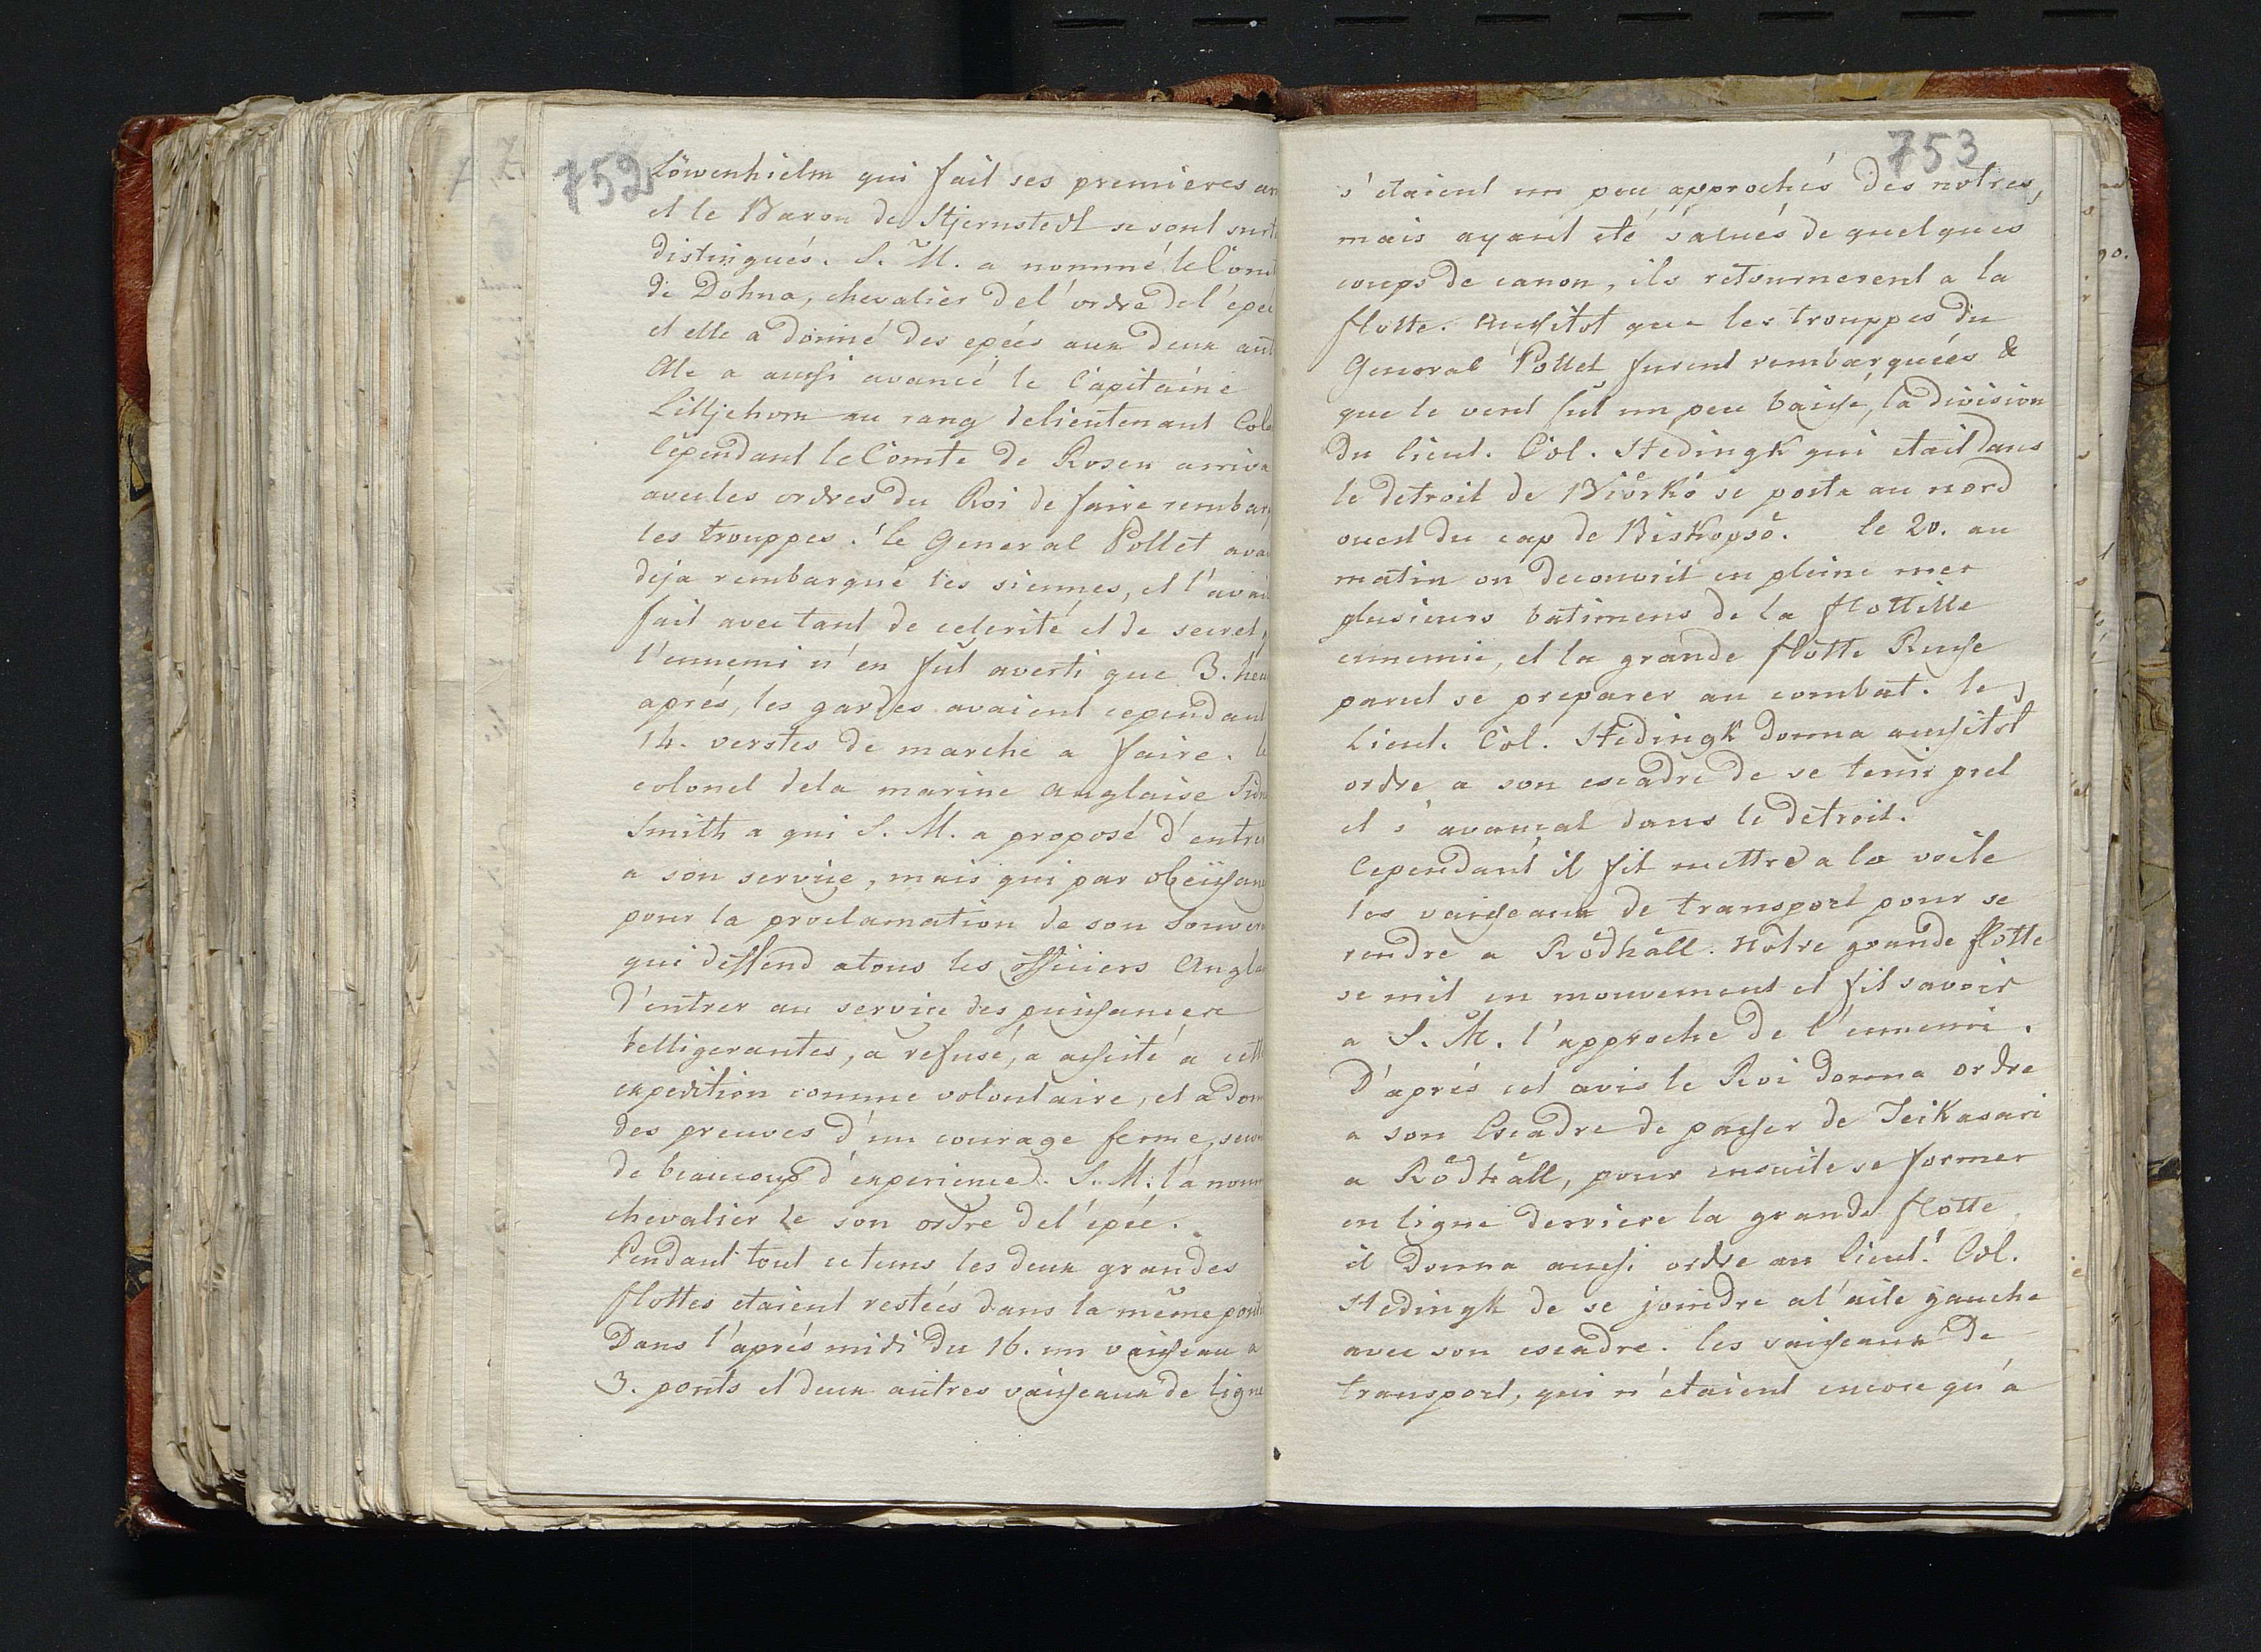 752
Löwenhielm qui fait ses premieres ar
et le Baron de Stjernstedt se sont surt
distingués. S. M. a nommé le Comt
de Dohna, chevalier de l'ordre de l'épée
et elle a donné des epées aux deux aut
Ale a aussi avancé le Capitaine
Lilljehorn au rang de lieutenant Colo
Cependant le Comte de Rosen arriva
avec les ordres du Roi de faire rembarq
les trouppes. le General Pollet avai
deja rembarqué les siennes, et l'avai
fait avec tant de celerité et de secret,
l'ennemi n'en fut averti que 3. heu
aprés, les gardes avaient cependant
14. verstes de marche a faire. le
colonel dela marine anglaise Sidn
Smith a qui S. M. a proposé d'entrer
a son service, mais qui par obeissanc
pour la proclamation de son Souvera
qui deffend a tous les officiers Angla
d'entrer au service des puissances
belligerantes, a refusé, a assisté a cett
expedition comme volontaire, et a don
des preuves d'un courage ferme, secon
de beaucoup d'experience. S. M. l'a nomm
chevalier de son ordre de l'épée.
Pendant tout ce tems les deux grandes
flottes etaient restées dans la même posit
Dans l'aprés midi du 16. un vaisseau a
3. ponts et deux autres vaisseaux de ligne
753
s'etaient un peu approchés des notres,
mais ayant eté salués de quelques
coups de canon, ils retournerent a la
flotte. Aussitot que les trouppes du
General Pollet furent rembarquées &
que le vent fut un peu baissé, la division
du lieut. Col. Stedingk qui etait dans
le detroit de Biörkö se posta au nord
ouest du cap de Biskopsö. le 20. au
matin on decouvrit en pleine mer
plusieurs batimens de la flottille
ennemie, et la grande flotte Russe
parut se preparer au combat. le
Lieut. Col. Stedingk donna aussitot
ordre a son escadre de se tenir pret
et s'avançat dans le detroit.
Cependant il fit mettre a la voile
les vaisseaux de transport pour se
rendre a Rödhäll. Nôtre grande flotte
se mit en mouvement et fit savoir
a S. M. l'approche de l'ennemi.
D'aprés cet avis le Roi donna ordre
a son Escadre de passer de Teikasari
a Rödhäll, pour ensuite se former
en ligne derriere la grande flotte
il donna aussi ordre au lieut. Col.
Stedingk de se joindre a l'aile gauche
avec son escadre. les vaisseaux de
transport, qui n'étaient encore qu'á